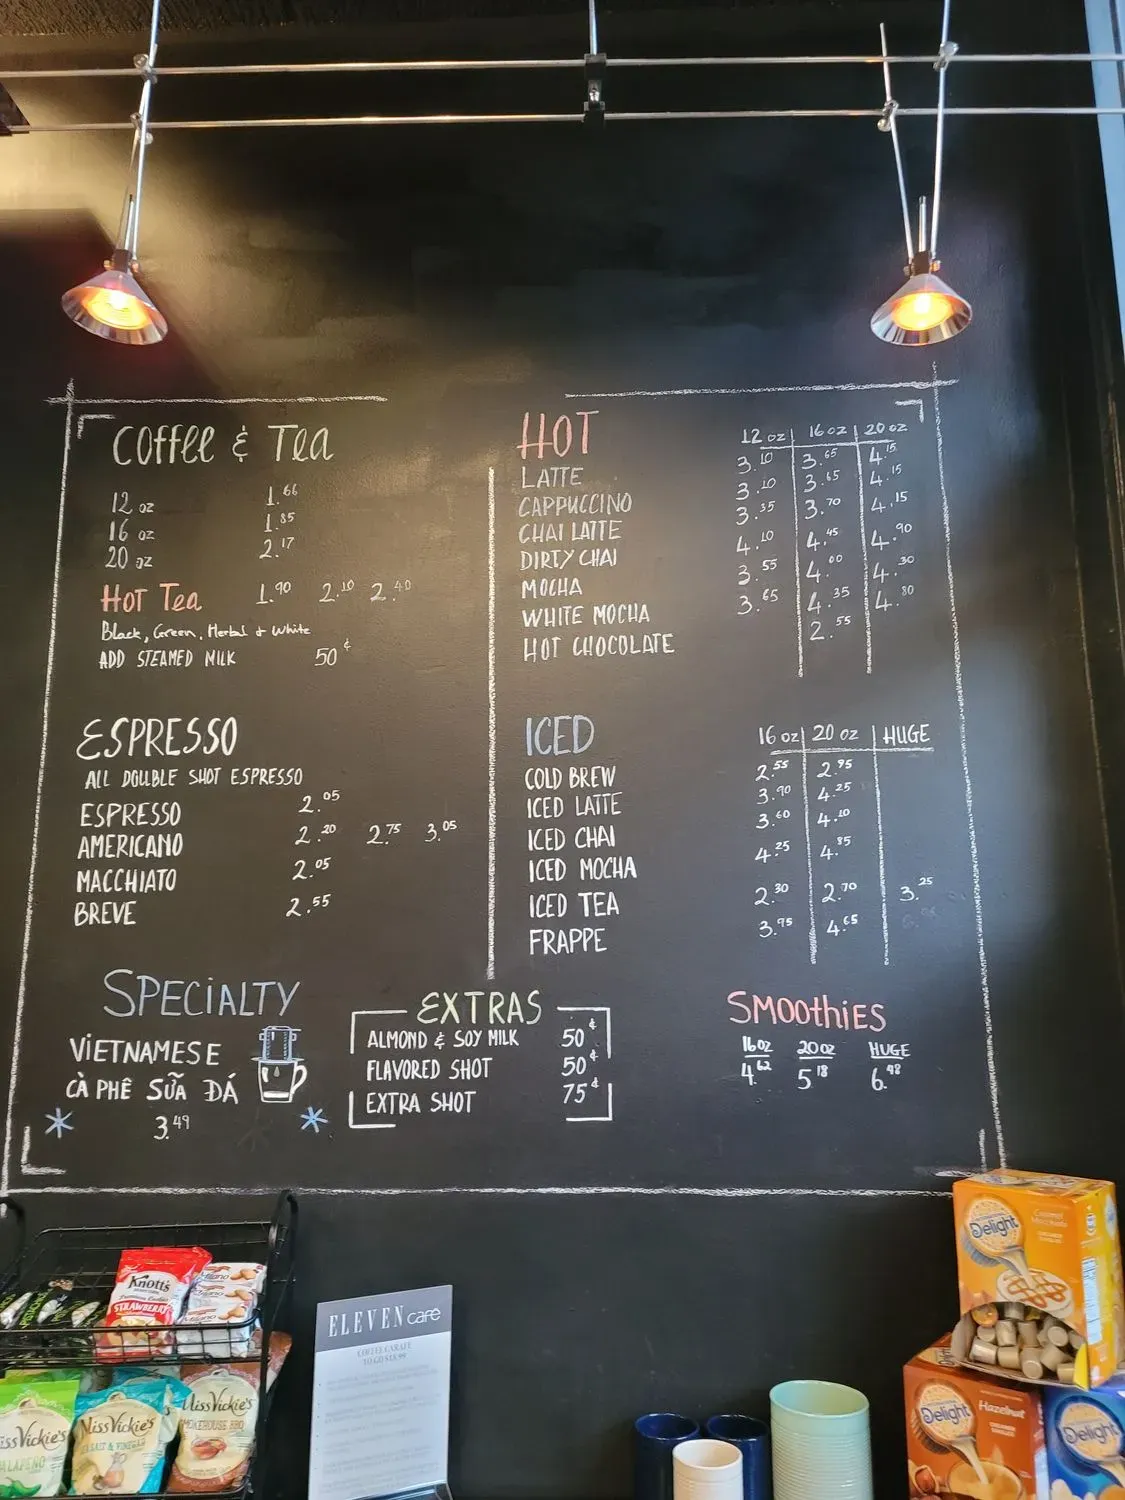 Coffee & Tea
12 oz 1.66
16 oz 1.85
20 oz 2.17
Hot Tea 1.90 2.10 2.40
Black, Green, Herbal & White
ADD STEAMED MILK 50¢
ESPRESSO
ALL DOUBLE SHOT ESPRESSO
ESPRESSO 2.05
AMERICANO 2.20 2.75 3.05
MACCHIATO 2.05
BREVE 2.55
HOT 12 oz 16 oz 20 oz
LATTE 3.10 3.65 4.15
CAPPUCCINO 3.10 3.65 4.15
CHAI LATTE 3.35 3.70 4.15
DIRTY CHAI 4.10 4.45 4.90
MOCHA 3.55 4.00 4.30
WHITE MOCHA 3.65 4.35 4.80
HOT CHOCOLATE 2.55
ICED 16 oz 20 oz HUGE
COLD BREW 2.55 2.95
ICED LATTE 3.90 4.25
ICED CHAI 3.60 4.10
ICED MOCHA 4.25 4.85
ICED TEA 2.30 2.70 3.25
FRAPPE 3.95 4.65
SPECIALTY
VIETNAMESE
CÀ PHÊ SỮA ĐÁ
3.49
EXTRAS
ALMOND & SOY MILK 50¢
FLAVORED SHOT 50¢
EXTRA SHOT 75¢
SMOOTHIES
16 oz 20 oz HUGE
4.62 5.18 6.48
Knott's
STRAWBERRY
Milano
ELEVEN café
COFFEE CARAFE
Miss Vickie's
JALAPEÑO
Miss Vickie's
SEA SALT & VINEGAR
Miss Vickie's
SMOKEHOUSE BBQ
Delight
Caramel
Delight
Hazelnut
Delight